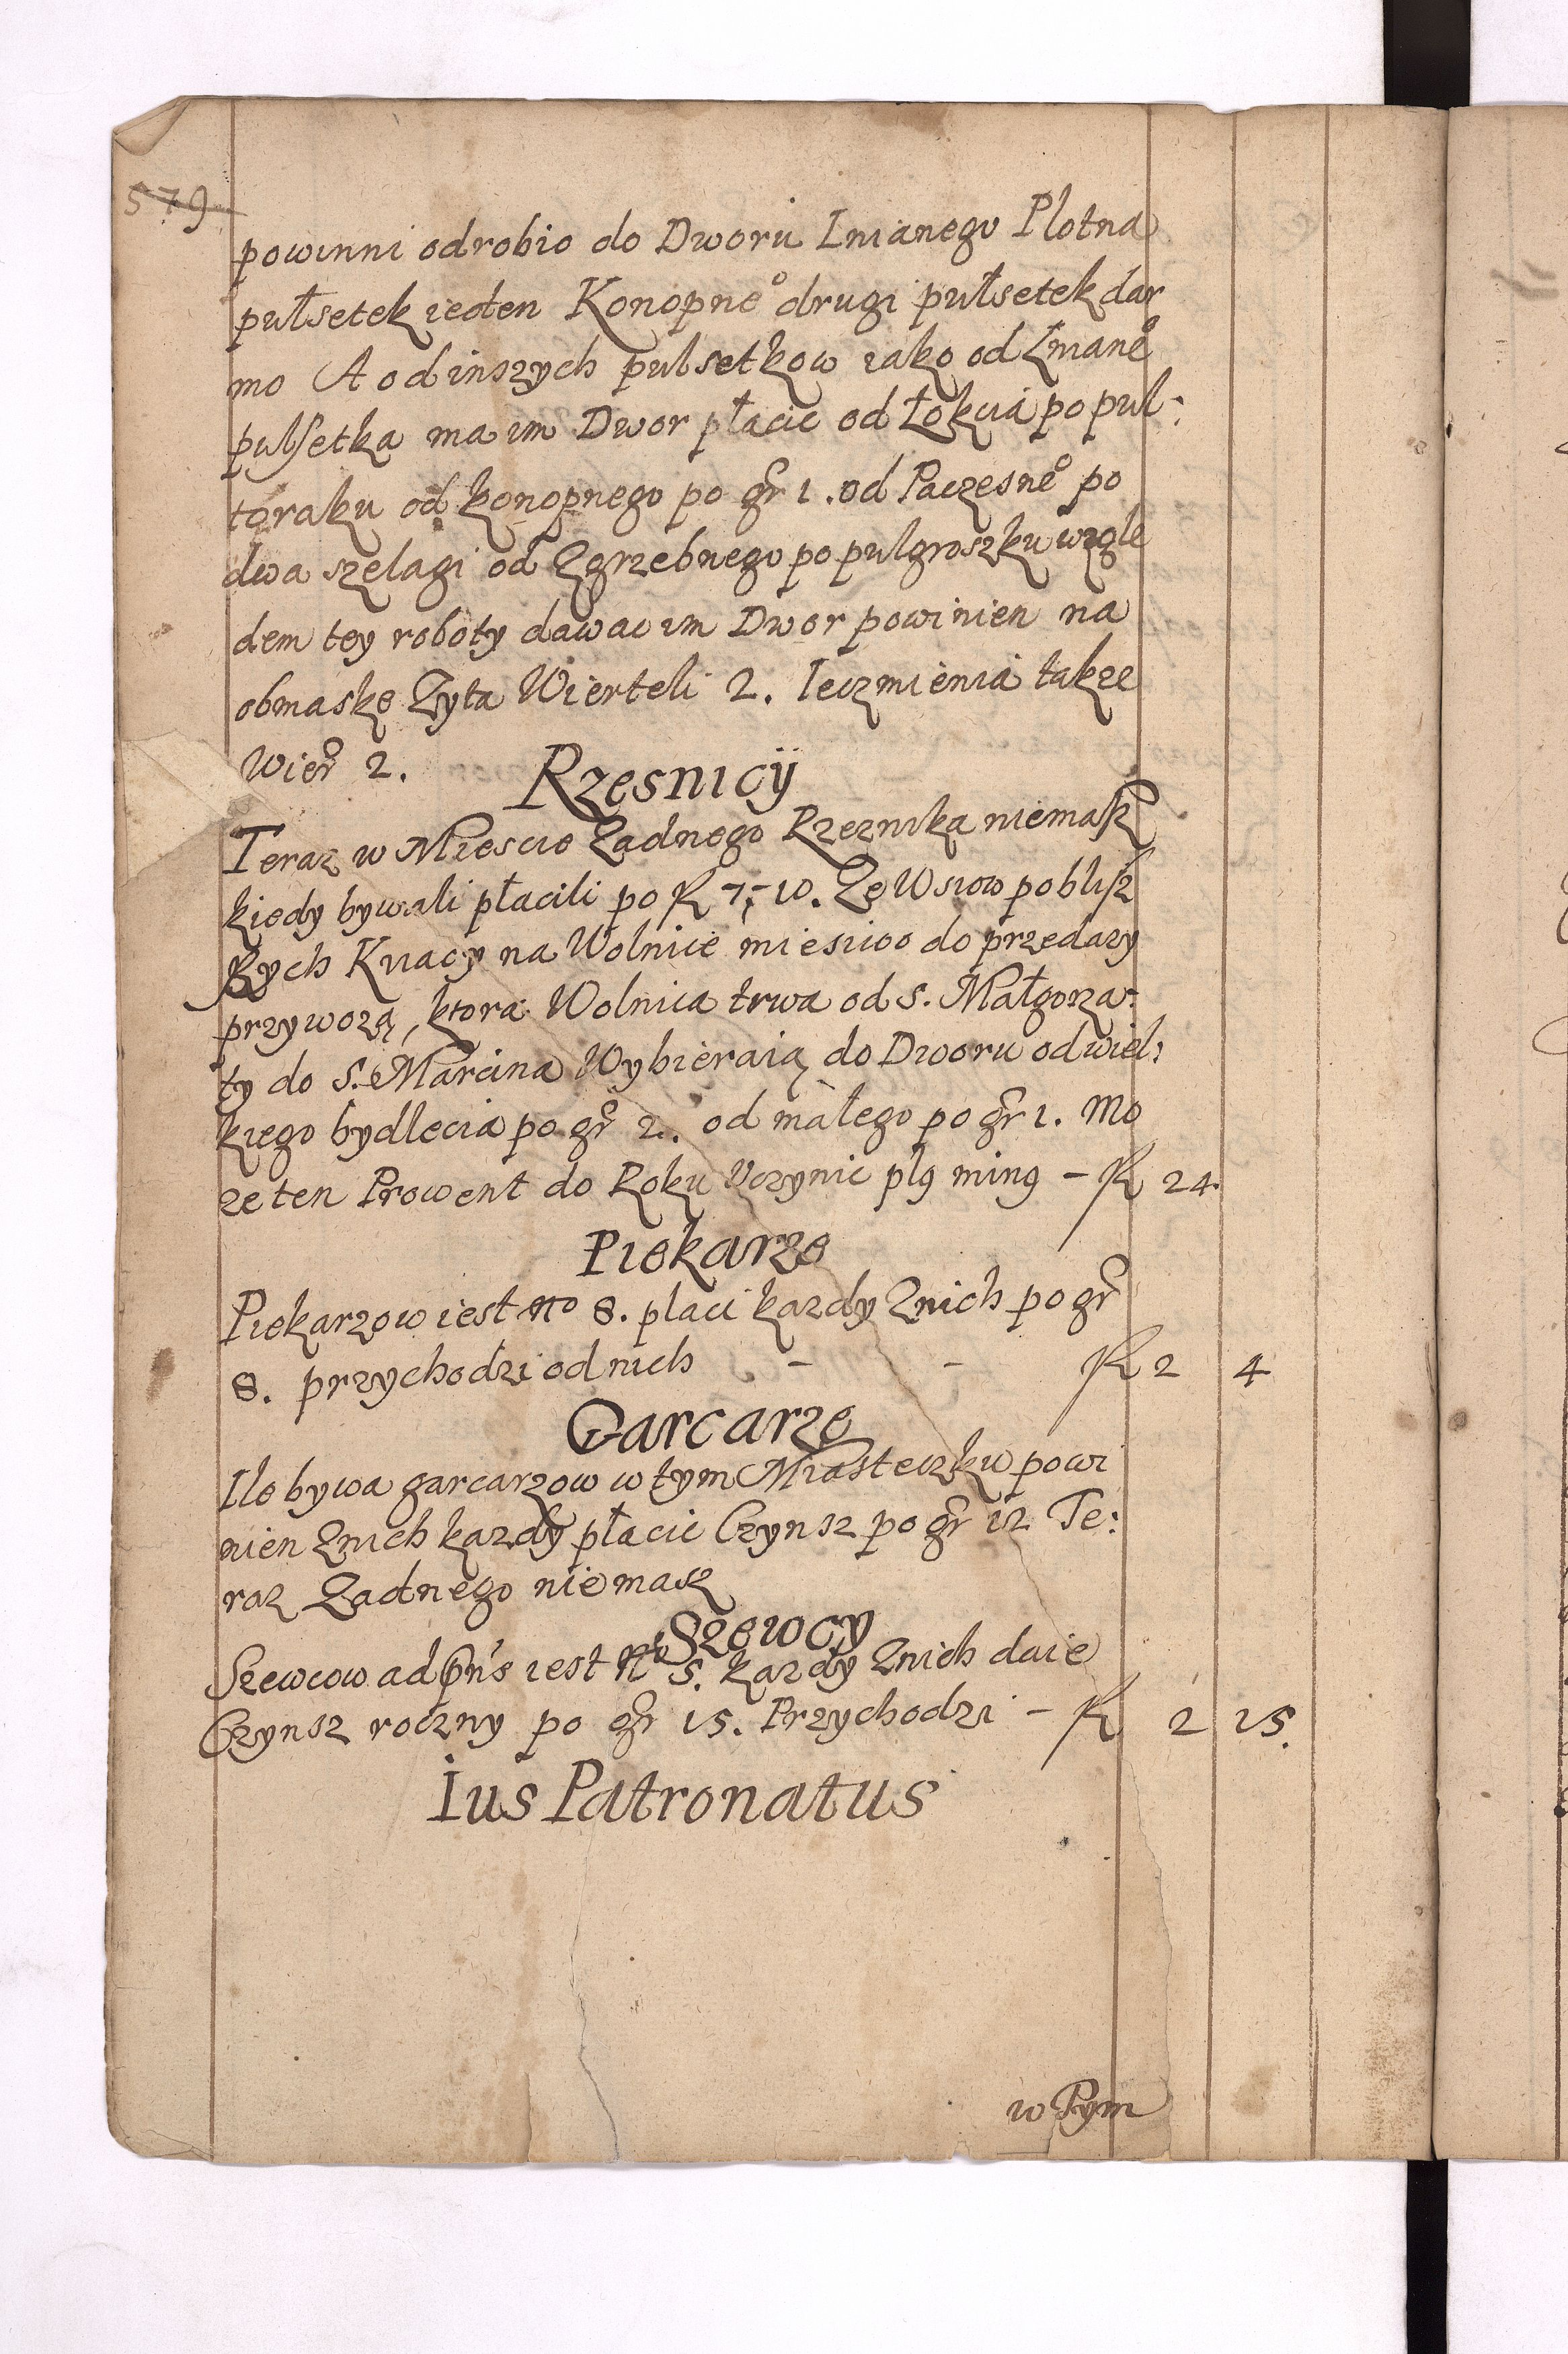 579
powinni odrobic do Dworu Lnianego Plotna
pułsetek ieden Konopne° drugi pułsetek dar
mo A od inszych pulsetkow iako od Lniane°
pulsetka ma im Dwor płacic od Łokcia po pul-
toraku od konopnego po gr 1. od Paczesne° po
dwa szelagi od Zgrzebnego po pulgroszku wzgle
dem tey roboty dawac im Dwor powinien na
obmaske Zyta Wierteli 2. Ieczmienia takze
Wier 2.
Rzesnicÿ
Teraz w Miescie Zadnego Rzeznika niemasz
kiedy bywali płacili po R 7,- 10. Ze Wsiow poblisz
szych Kuacy na Wolnice miesiwo do przedazy
przywozą, ktora Wolnica trwa od S. Małgorza-
ty do S. Marcina Wybieraią do Dworu od wiel:
kiego bydlecia po gr 2. od małego po gr 1. Mo
ze ten Prowent do Roku Uczynic pl9 min9 - R 24.
Piekarze
Piekarzow iest No 8. placi kazdy Znich po gr
8. przychodzi od nich - - R 2 4
Garcarze
Ile bywa garcarzow w tym Miasteczku powi
nien Znich kazdy płacic Czynsz po gr 12 Te:
raz Zadnego niemasz
Szewcy
Szewcow ad p̄ns iest No 5. kazdy Znich daie
Czynsz roczny po gr 15. Przychodzi - R 2 15.
Ius Patronatus
w Tym